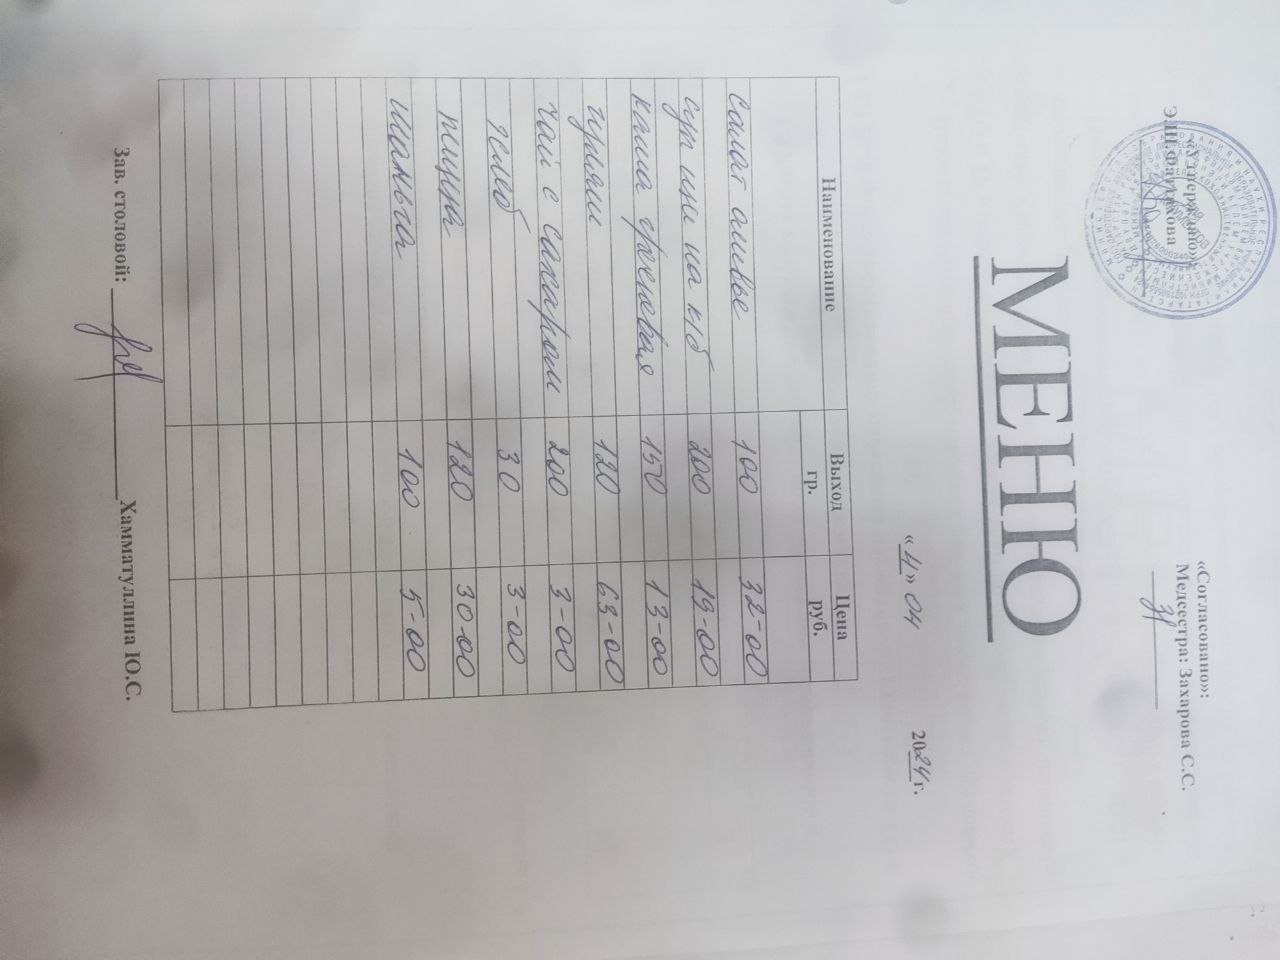 «Утверждаю»:
«Согласовано»:
Медсестра: Захарова С.С.
МЕНЮ
«4» 04 2024 г.
Наименование Выход гр. Цена руб.
салат оливье 100 32-00
суп щи на к/б 200 19-00
каша гречневая 150 13-00
гуляш 120 63-00
чай с сахаром 200 3-00
хлеб 30 3-00
пицца 120 30-00
шаньга 100 5-00
Зав. столовой: Хамматуллина Ю.С.